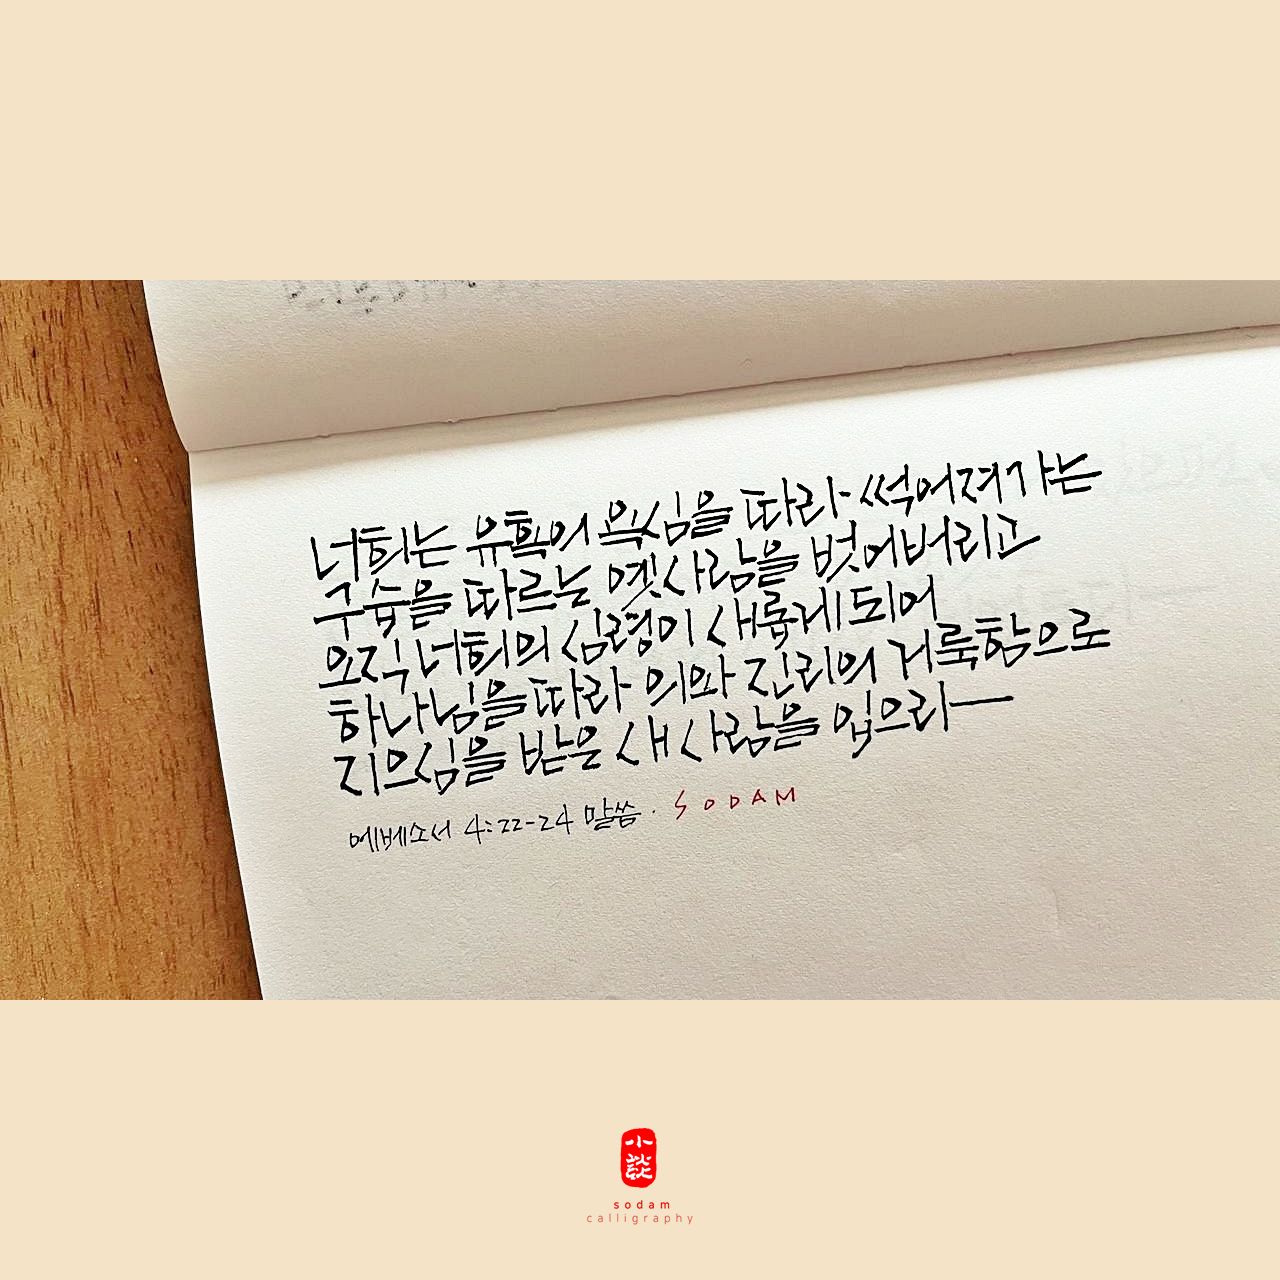 너희는 유혹의 욕심을 따라 썩어져가는
구습을 따르는 옛사람을 벗어버리고
오직 너희의 심령이 새롭게 되어
하나님을 따라 의와 진리의 거룩함으로
지으심을 받은 새 사람을 입으라
에베소서 4:22-24 말씀. SODAM
小談
sodam
calligraphy